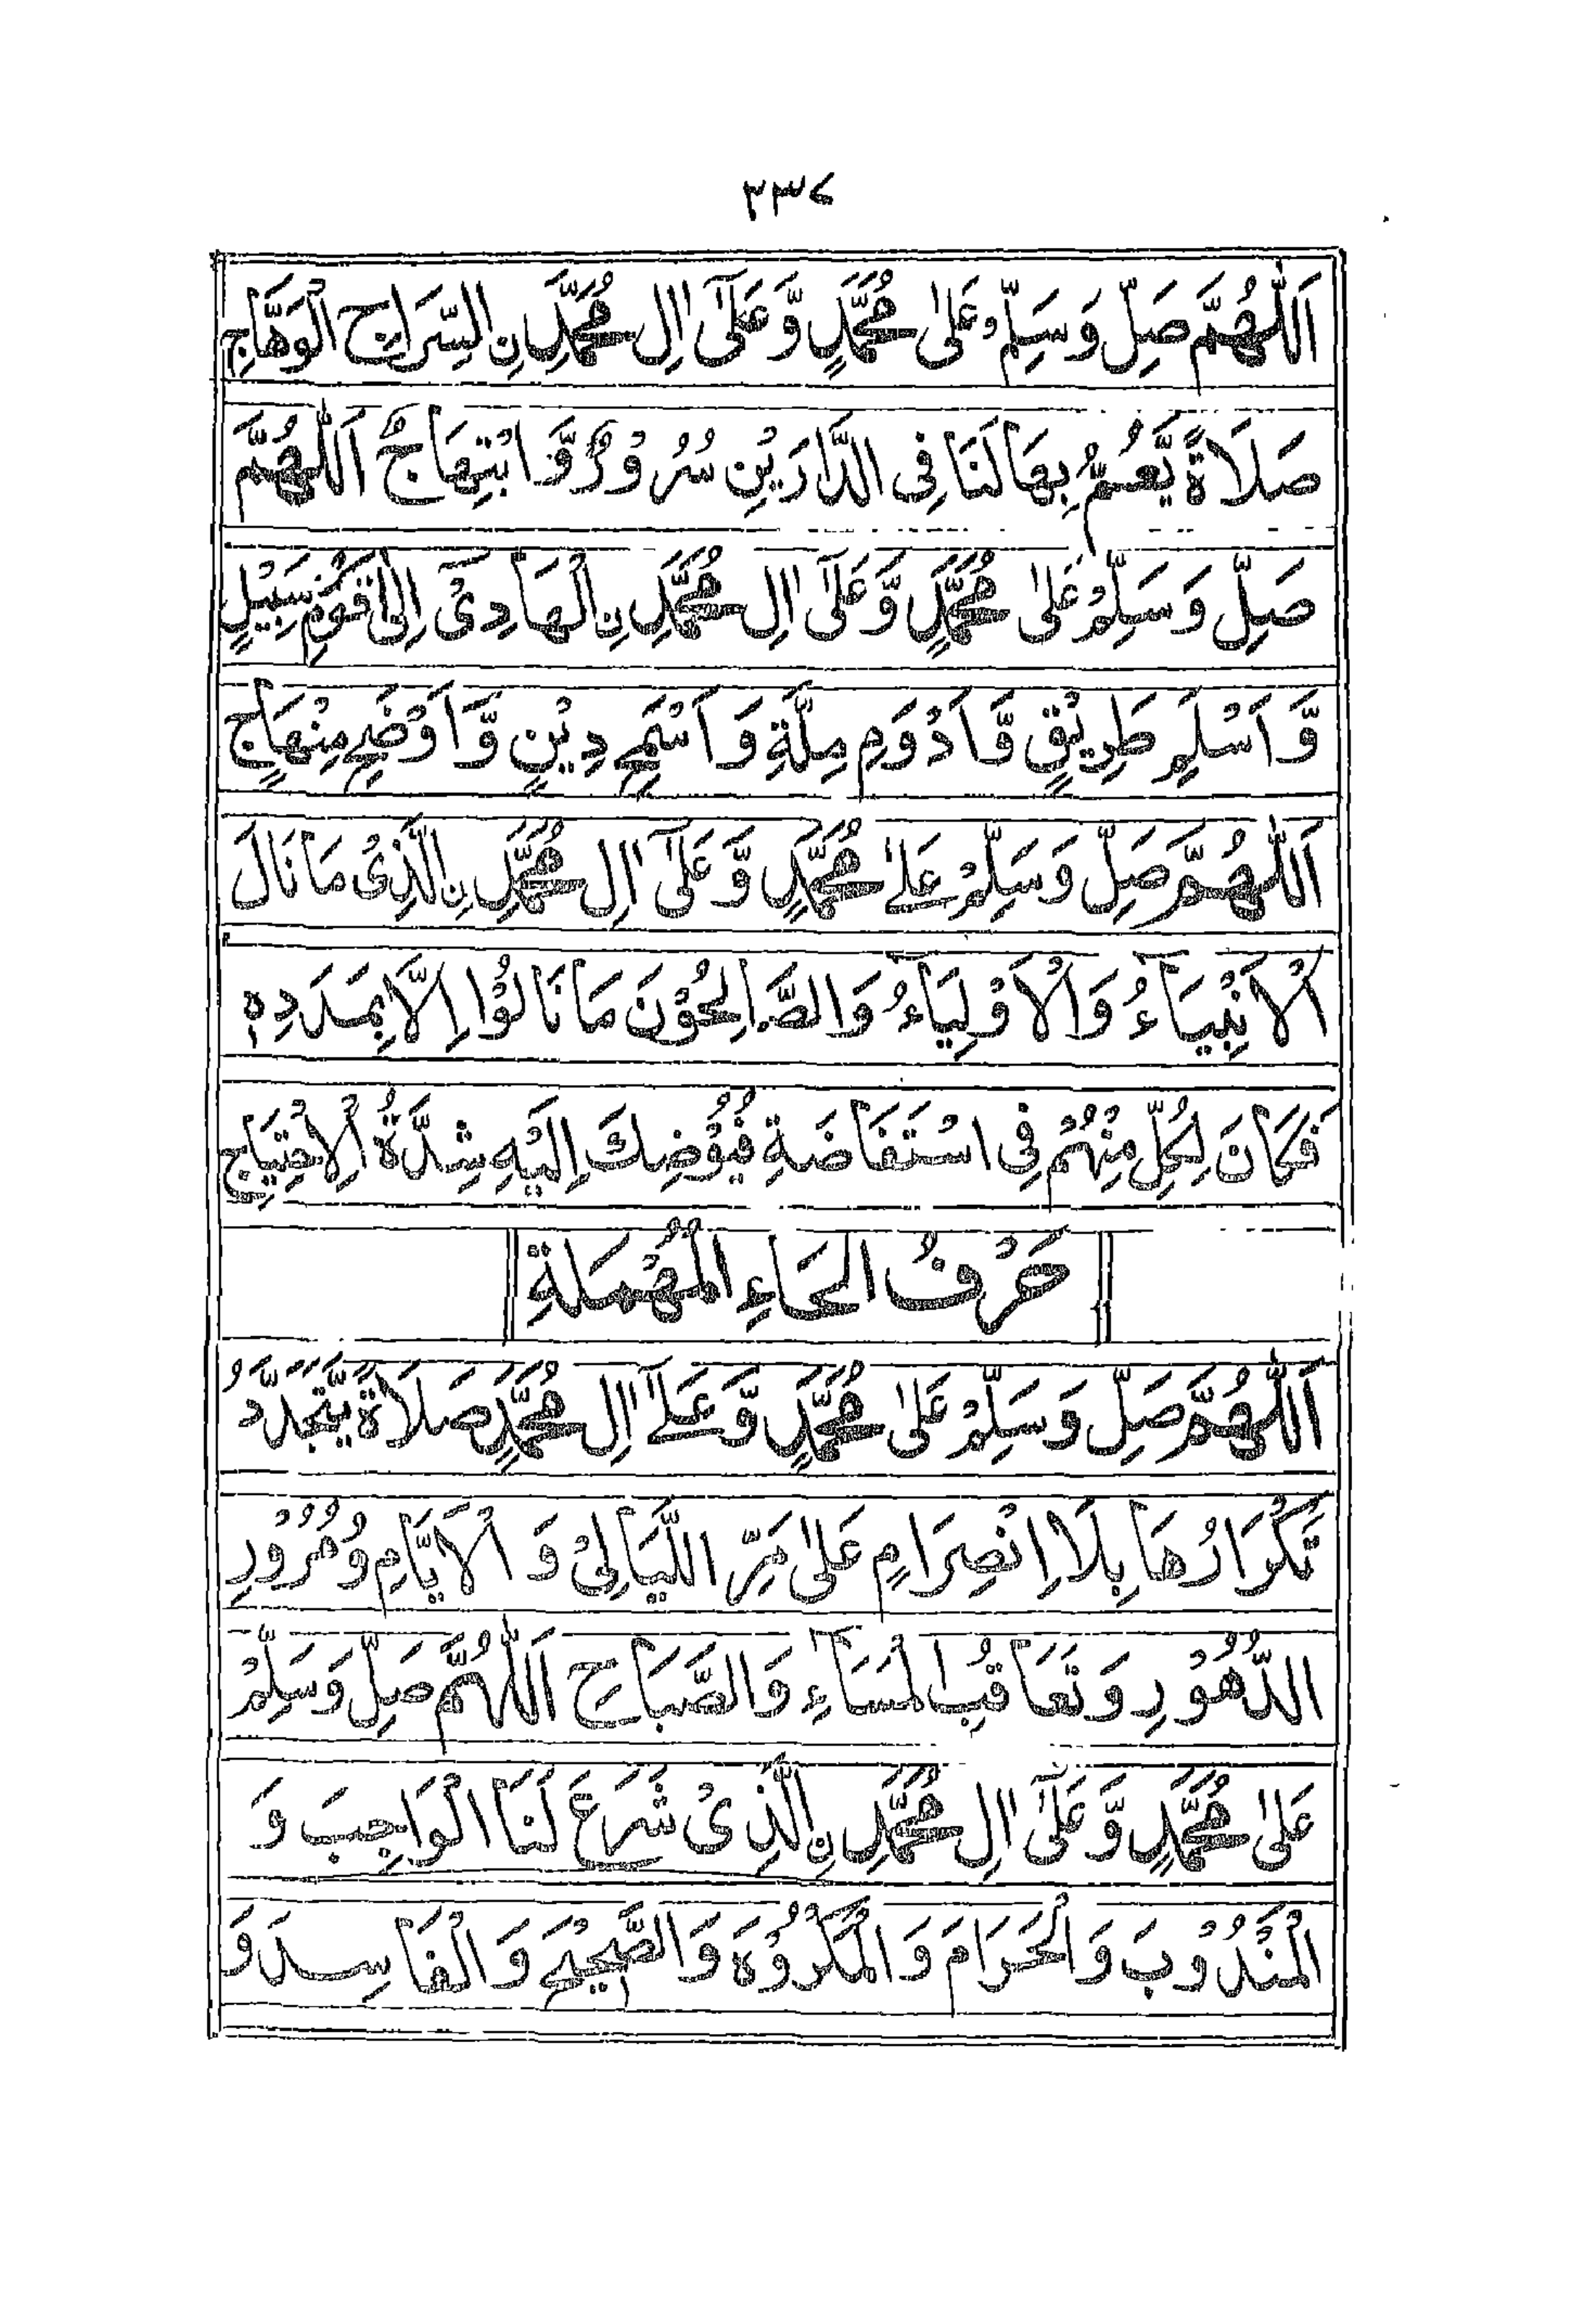 ٢٣٧
اَللّٰهُمَّ صَلِّ وَسَلِّمْ عَلٰى مُحَمَّدٍ وَّعَلٰٓى اٰلِ مُحَمَّدِنِ السِّرَاجِ الْوَهَّاجِ
صَلَاةً يَّعُمُّ بِهَا لَنَا فِى الدَّارَيْنِ سُرُوْرٌ وَّابْتِهَاجٌ اَللّٰهُمَّ
صَلِّ وَسَلِّمْ عَلٰى مُحَمَّدٍ وَّعَلٰٓى اٰلِ مُحَمَّدِنِ الْهَادِىْٓ اِلٰٓى اَقْوَمِ سَبِيْلٍ
وَّاَسْلَمِ طَرِيْقٍ وَّاَدْوَمِ مِلَّةٍ وَاَسْمَحِ دِيْنٍ وَّاَوْضَحِ مِنْهَاجٍ
اَللّٰهُمَّ صَلِّ وَسَلِّمْ عَلٰى مُحَمَّدٍ وَّعَلٰٓى اٰلِ مُحَمَّدِنِ الَّذِىْ مَا نَالَ
الْاَنْبِيَآءُ وَالْاَوْلِيَآءُ وَالصَّالِحُوْنَ مَا نَالُوْا اِلَّا بِمَدَدِهٖ
فَكَانَ لِكُلٍّ مِنْهُمْ فِى اسْتَفَاضَةِ فُيُوْضِكَ اِلَيْهِ شِدَّةُ الْاِحْتِيَاجِ
حَرْفُ الْحَاءِ الْمُهْمَلَةِ
اَللّٰهُمَّ صَلِّ وَسَلِّمْ عَلٰى مُحَمَّدٍ وَّعَلٰٓى اٰلِ مُحَمَّدٍ صَلَاةً يَّتَجَدَّدُ
تَكْرَارُهَا بِلَا اِنْصِرَامٍ عَلٰى مَرِّ اللَّيَالِىْ وَالْاَيَّامِ وَمُرُوْرِ
الدُّهُوْرِ وَتَعَاقُبِ الْمَسَآءِ وَالصَّبَاحِ اَللّٰهُمَّ صَلِّ وَسَلِّمْ
عَلٰى مُحَمَّدٍ وَّعَلٰٓى اٰلِ مُحَمَّدِنِ الَّذِىْ شَرَعَ لَنَا الْوَاجِبَ وَ
الْمَنْدُوْبَ وَالْحَرَامَ وَالْمَكْرُوْهَ وَالصَّحِيْحَ وَالْفَاسِدَ وَ